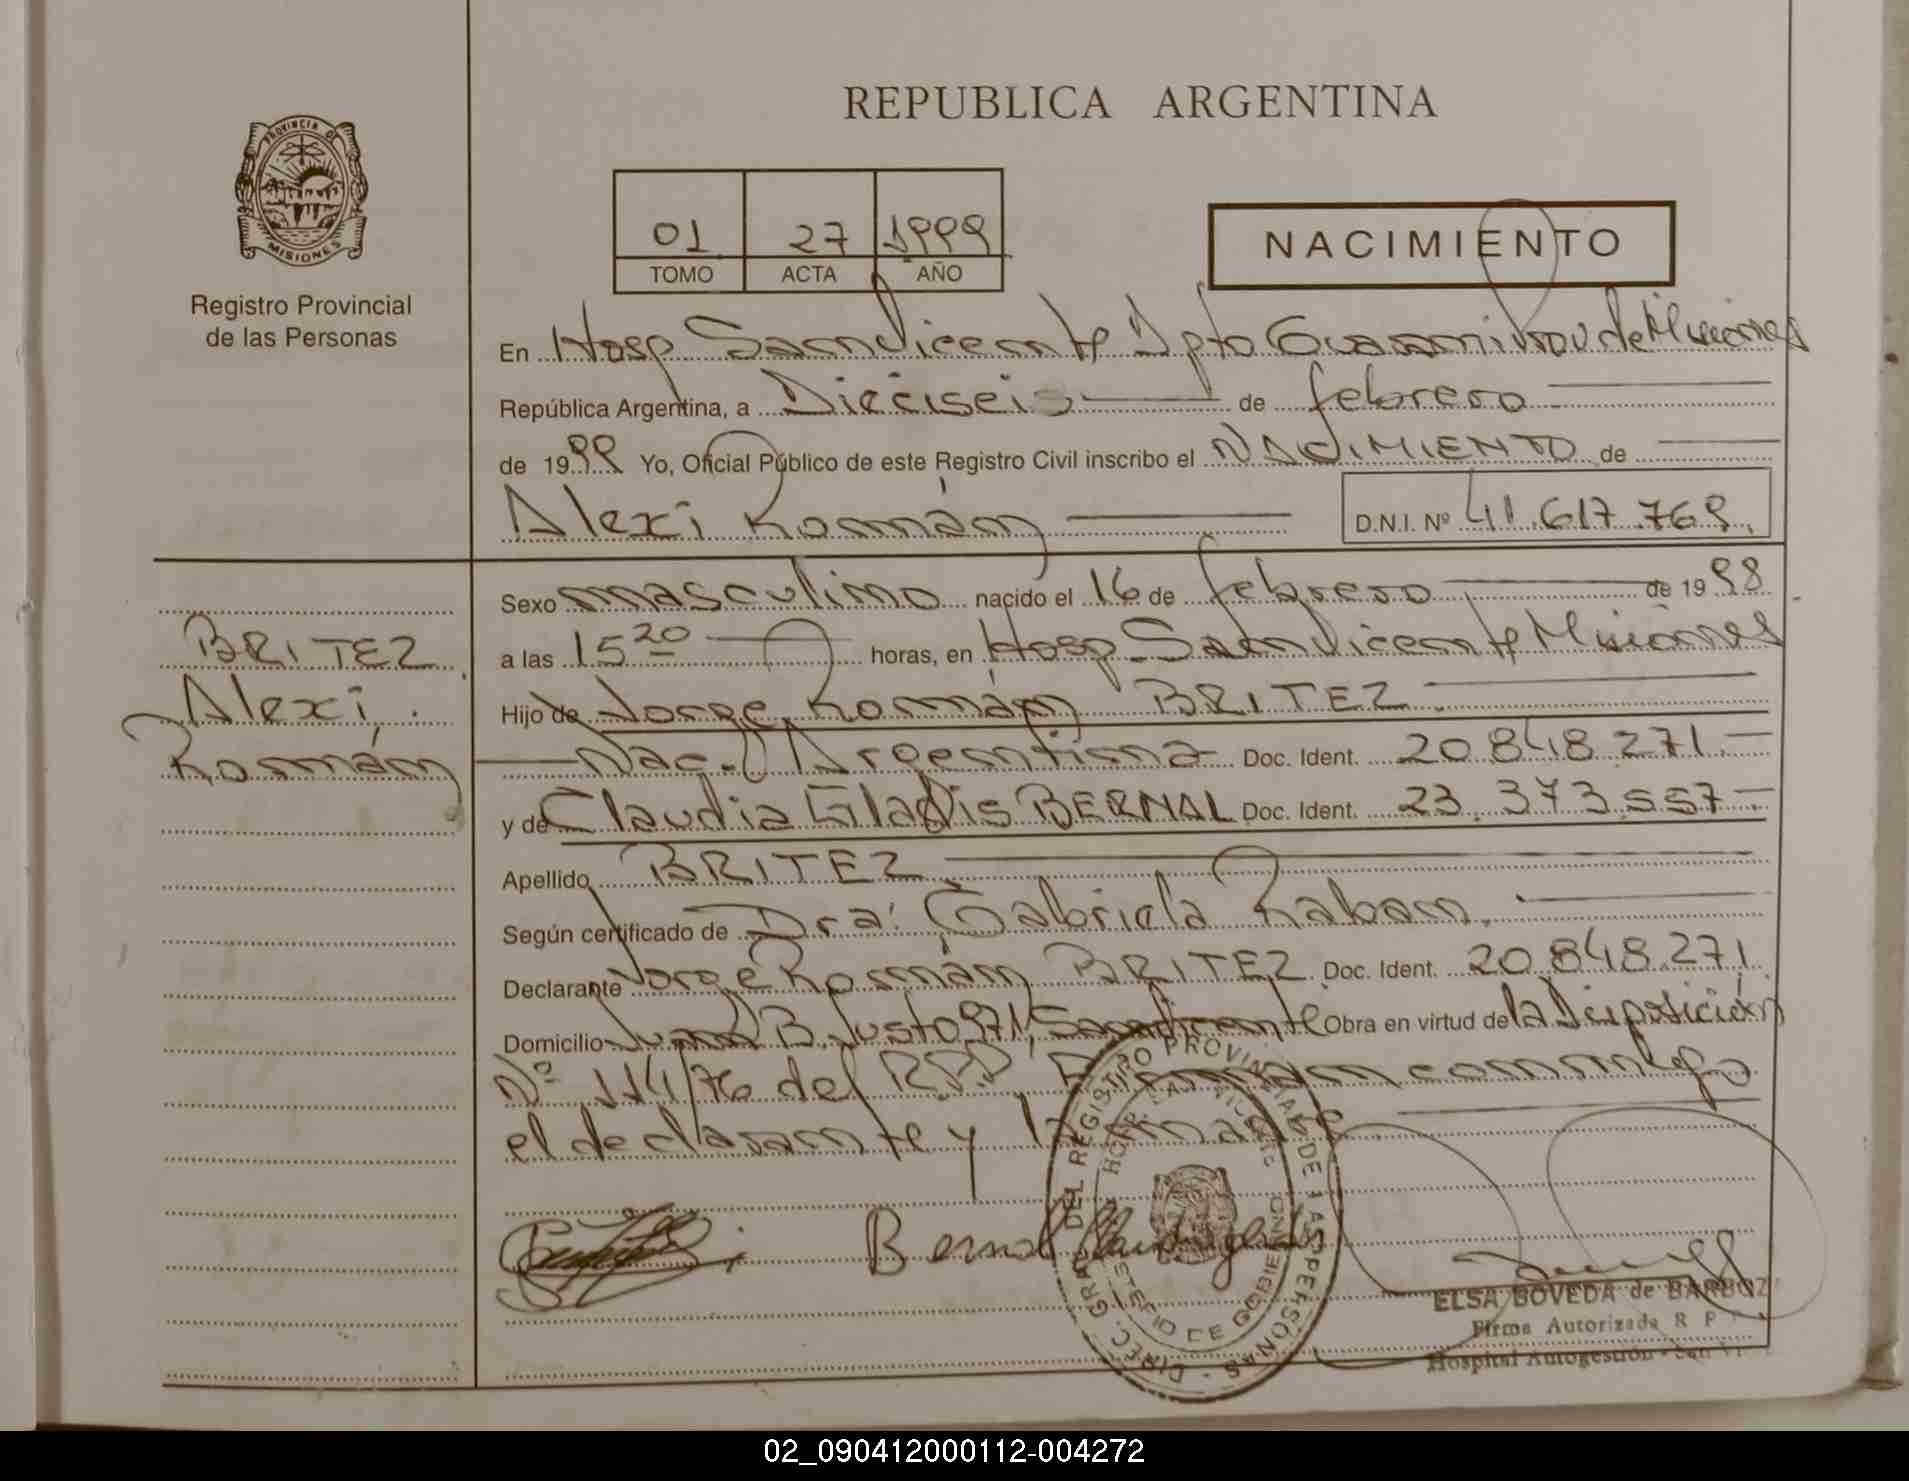 REPUBLICA ARGENTINA
PROVINCIA DE
MISIONES
Registro Provincial
de las Personas
01 27 1999
TOMO ACTA AÑO
NACIMIENTO
En Hosp San Vicente Dpto Guaraní Prov de Misiones
República Argentina, a Dieciseis de febrero
de 1999 Yo, Oficial Público de este Registro Civil inscribo el NACIMIENTO de
Alexi Román D.N.I. Nº 41.617.769.
Sexo masculino nacido el 16 de febrero de 1998
a las 15 20 horas, en Hosp San Vicente Misiones
Hijo de Jorge Román BRITEZ
Nac. Argentina Doc. Ident. 20.848.271
y de Claudia Gladis BERNAL Doc. Ident. 23.373.557
Apellido BRITEZ
Según certificado de Dra: Gabriela Raban
Declarante Jorge Román BRITEZ Doc. Ident. 20.848.271
Domicilio Juan B. Justo 971, San Vicente Obra en virtud de la Disposición
Nº 114/76 del R.P.P Firman conmigo
el declarante y la madre
BRITEZ
Alexi
Román
Bernal Claudia Gladis
DIREC. GRAL DEL REGISTRO PROVINCIAL DE LAS PERSONAS
ELSA BOVEDA de BARBOZA
Firma Autorizada R P
Hospital Autogestión - San Vi
02_090412000112-004272